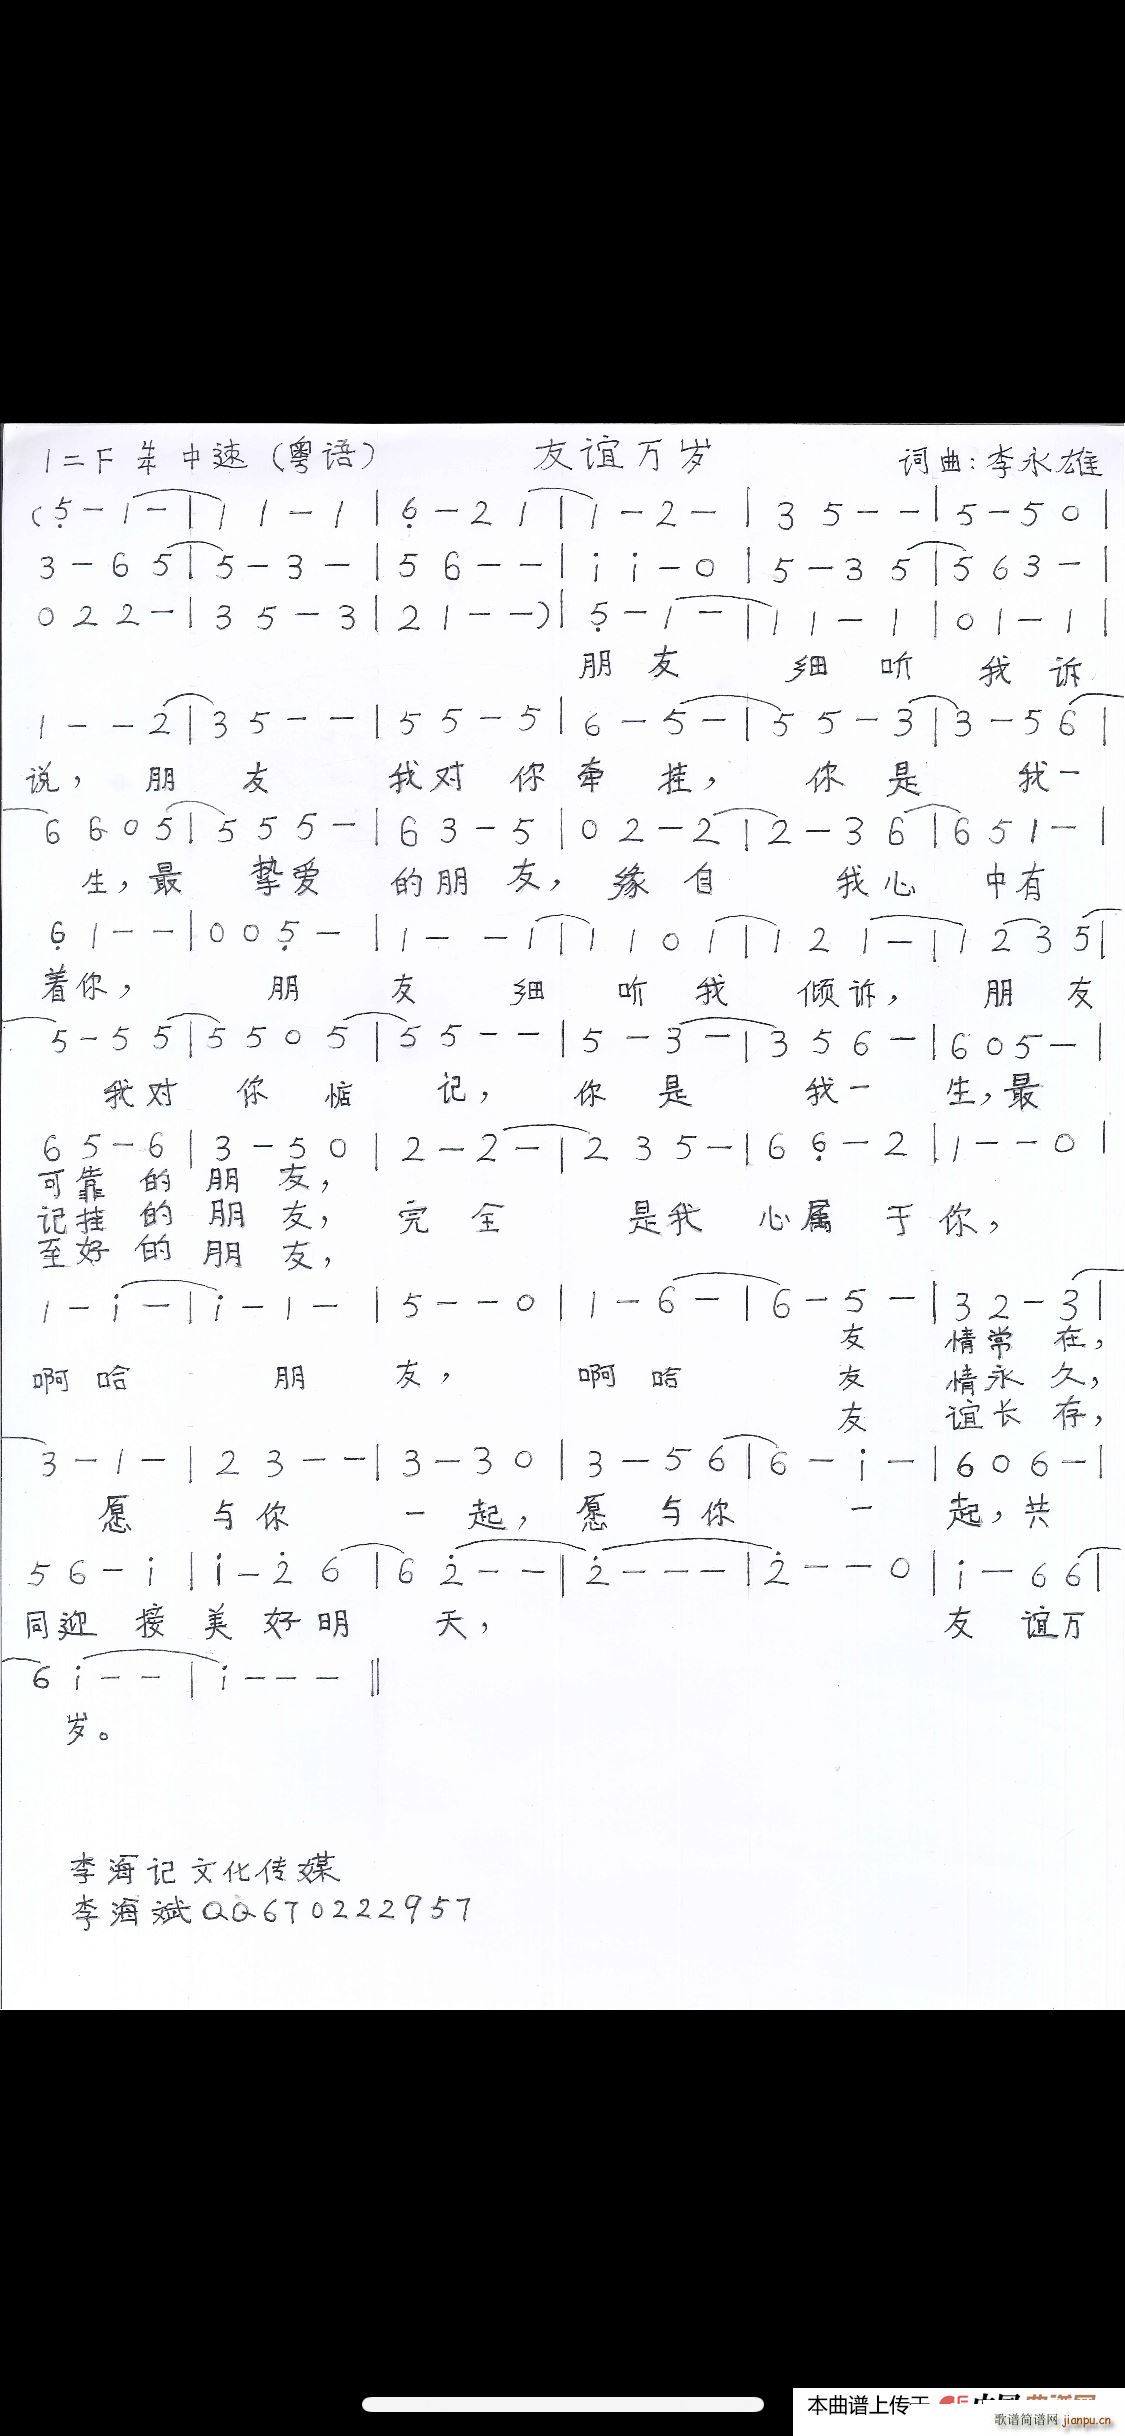 1=F 4/4 中速（粤语） 友谊万岁 词曲:李永雄
(5-1-|111-1|6-21|1-2-|35--|5-50|
3-65|5-3-|56--|ii-0|5-35|563-|
022-|35-3|21--)|5-1-|11-1|01-1|
朋友 细听 我诉
1--2|35--|55-5|6-5-|55-3|3-56|
说，朋友 我对你牵挂，你是 我一
6605|555-|63-5|02-2|2-36|651-|
生，最 挚爱 的朋友，缘自 我心 中有
61--|005-|1--1|1101|121-|1235|
着你， 朋 友 细 听我 倾诉， 朋 友
5-55|5505|55--|5-3-|356-|605-|
我对 你 惦 记， 你 是 我一 生，最
65-6|3-50|2-2-|235-|66-2|1--0|
可靠的朋友，
记挂的朋友，完全 是我 心属于你，
至好的朋友，
1-i-|i-1-|5--0|1-6-|6-5-|32-3|
友 情常在，
啊哈 朋 友， 啊哈 友 情永久，
友 谊长存，
3-1-|23--|3-30|3-56|6-i-|606-|
愿 与你 一起，愿与你 一 起，共
56-i|i-26|62--|2---|2--0|i-66|
同迎接美好明 天， 友 谊万
6i--|i---‖
岁。
李海记文化传媒
李海斌QQ670222957
本曲谱上传于
歌谱简谱网 jianpu.cn